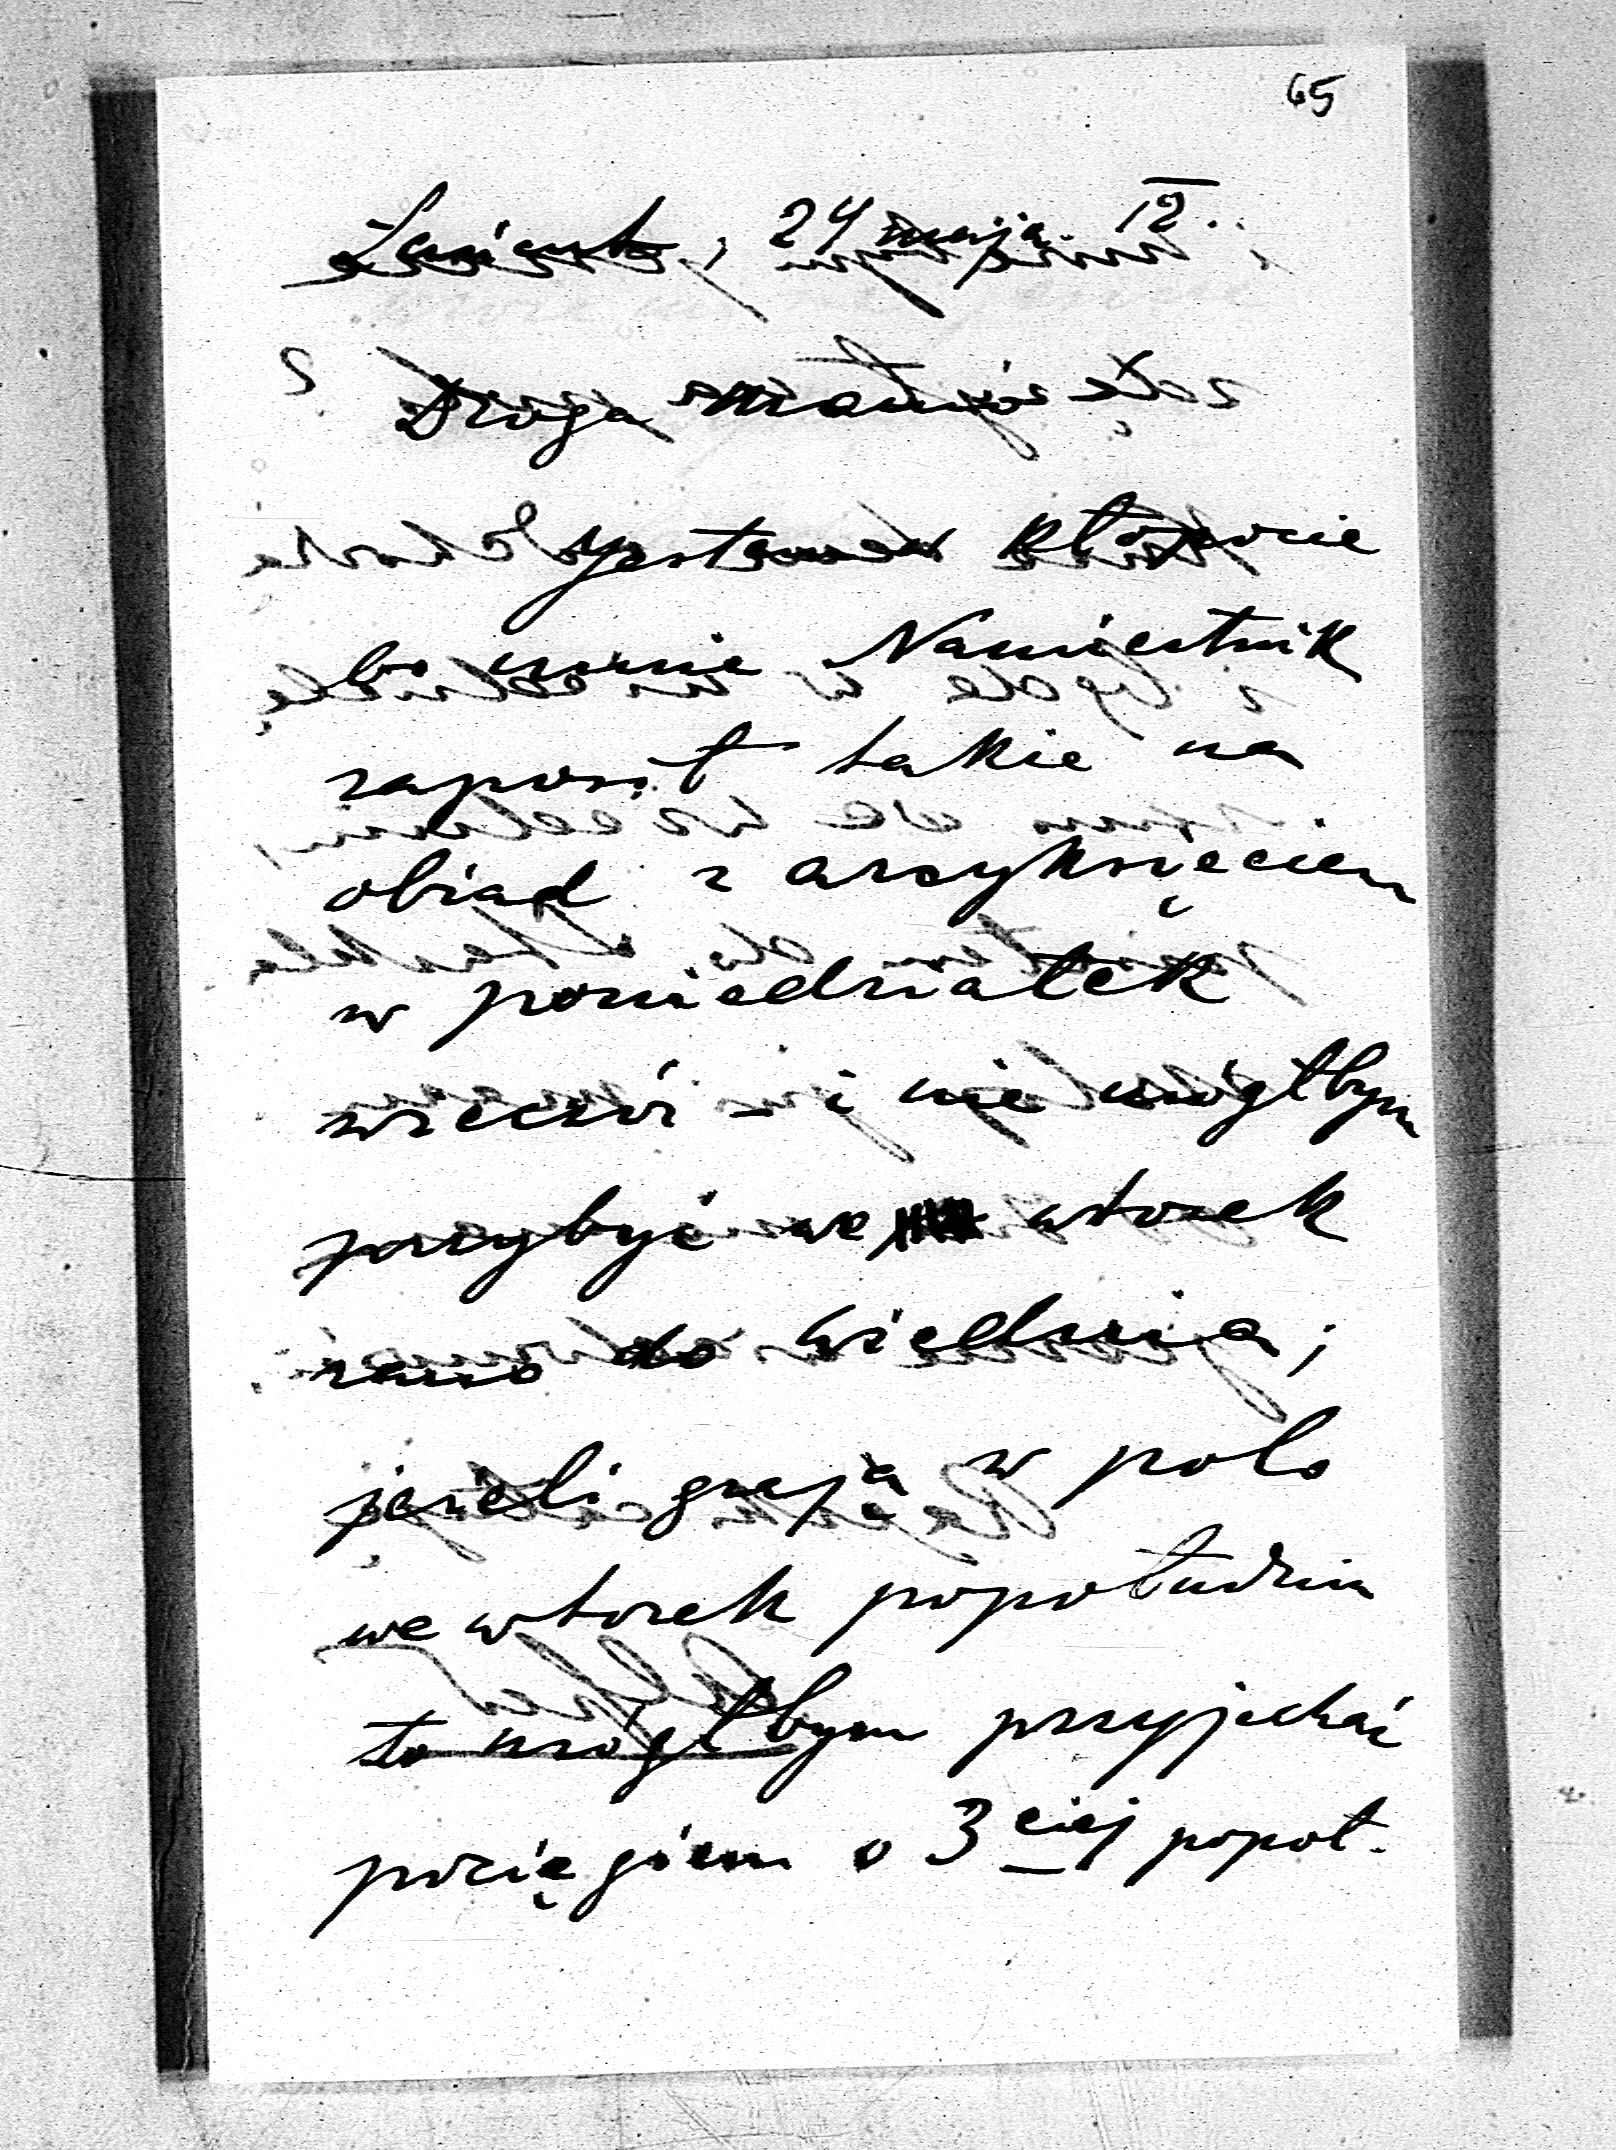 65
Łańcut, 24 maja. 12.
Droga Mamo
Jestem w kłopocie
bo mnie Namiestnik
zaprosił takie na
obiad z arcyksięciem
w poniedziałek
wieczór – i nie mógłbym
przybyć we wtorek
rano do Wiednia;
jeżeli grają w polo
we wtorek popołudniu
to mógłbym przyjechać
pociągiem o 3ciej popoł.